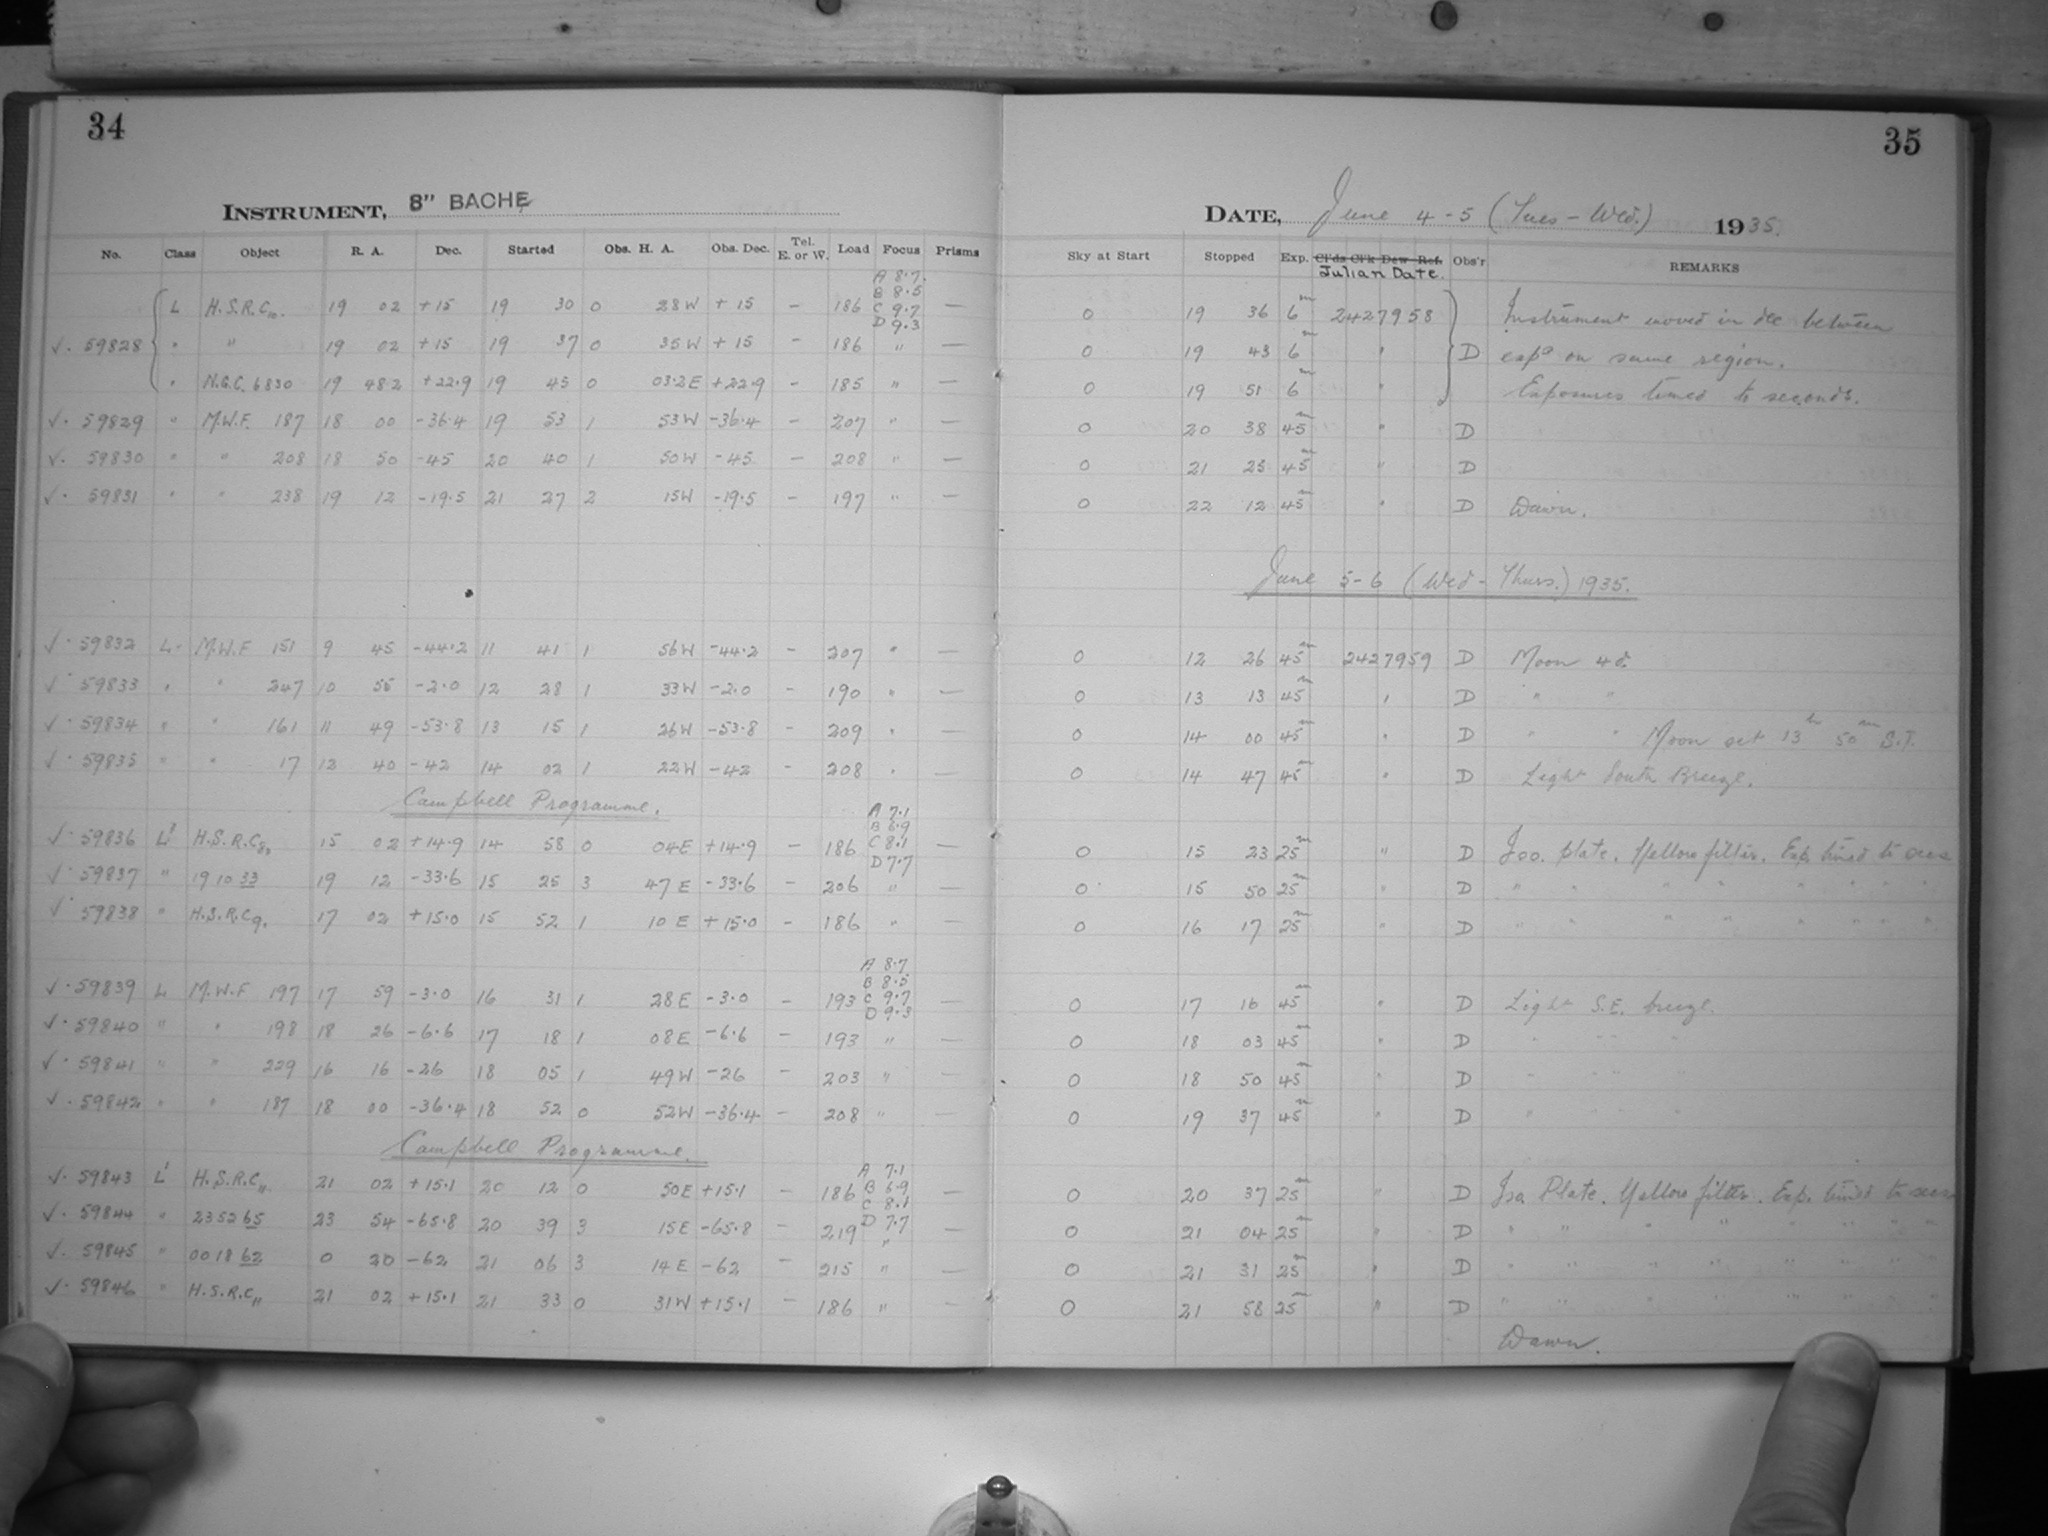 34
INSTRUMENT, 8" BACHE
No. Class Object R. A. Dec. Started Obs. H. A. Obs. Dec. Tel. E. or W. Load Focus Prisms
A 8.7
B 8.5
L H.S.R.C10. 19 02 +15 19 30 0 28W +15 - 186 C 9.7 —
D 9.3
✓. 59828 " " 19 02 +15 19 37 0 35W +15 - 186 " —
" N.G.C. 6830 19 48.2 +22.9 19 45 0 03.2E +22.9 - 185 " —
✓. 59829 " M.W.F. 187 18 00 -36.4 19 53 1 53W -36.4 - 207 " —
✓. 59830 " " 208 18 50 -45 20 40 1 50W -45 - 208 " —
✓. 59831 " " 238 19 12 -19.5 21 27 2 15W -19.5 - 197 " —
✓. 59832 L M.W.F 151 9 45 -44.2 11 41 1 56W -44.2 - 207 " —
✓. 59833 " " 247 10 55 -2.0 12 28 1 33W -2.0 - 190 " —
✓. 59834 " " 161 11 49 -53.8 13 15 1 26W -53.8 - 209 " —
✓. 59835 " " 17 12 40 -42 14 02 1 22W -42 - 208 " —
Campbell Programme.
A 7.1
B 6.9
✓. 59836 L' H.S.R.C8. 15 02 +14.9 14 58 0 04E +14.9 - 186 C 8.1 —
D 7.7
✓. 59837 " 19 10 33 19 12 -33.6 15 25 3 47E -33.6 - 206 " —
✓. 59838 " H.S.R.C9. 17 02 +15.0 15 52 1 10E +15.0 - 186 " —
A 8.7
B 8.5
✓. 59839 L M.W.F 197 17 59 -3.0 16 31 1 28E -3.0 - 193 C 9.7 —
D 9.3
✓. 59840 " " 198 18 26 -6.6 17 18 1 08E -6.6 - 193 " —
✓. 59841 " " 229 16 16 -26 18 05 1 49W -26 - 203 " —
✓. 59842 " " 187 18 00 -36.4 18 52 0 52W -36.4 - 208 " —
Campbell Programme.
A 7.1
✓. 59843 L' H.S.R.C11. 21 02 +15.1 20 12 0 50E +15.1 - 186 B 6.9 —
C 8.1
✓. 59844 " 23 52 65 23 54 -65.8 20 39 3 15E -65.8 - 219 D 7.7 —
✓. 59845 " 00 18 62 0 20 -62 21 06 3 14E -62 - 215 " —
✓. 59846 " H.S.R.C11 21 02 +15.1 21 33 0 31W +15.1 - 186 " —
35
DATE, June 4-5 (Tues-Wed.) 1935.
Sky at Start Stopped Exp. Cl'ds Cl'k Dew Ref. Obs'r REMARKS
Julian Date.
0 19 36 6m 2427958 Instrument moved in dec between
0 19 43 6m " D exps on same region.
0 19 51 6m " Exposures timed to seconds.
0 20 38 45m " D
0 21 25 45m " D
0 22 12 45m " D Dawn.
June 5-6 (Wed-Thurs.) 1935.
0 12 26 45m 2427959 D Moon 4d.
0 13 13 45m " D " "
0 14 00 45m " D " " Moon set 13h 50m S.T.
0 14 47 45m " D Light South Breeze.
0 15 23 25m " D Iso. plate. Yellow filter. Exp. timed to secs
0 15 50 25m " D " " " " " " " "
0 16 17 25m " D " " " " " " " "
0 17 16 45m " D Light S.E. breeze.
0 18 03 45m " D " " "
0 18 50 45m " D " " "
0 19 37 45m " D " " "
0 20 37 25m " D Iso Plate. Yellow filter. Exp. timed to secs
0 21 04 25m " D " " " " " " " "
0 21 31 25m " D " " " " " " " "
0 21 58 25m " D " " " " " " " "
Dawn.